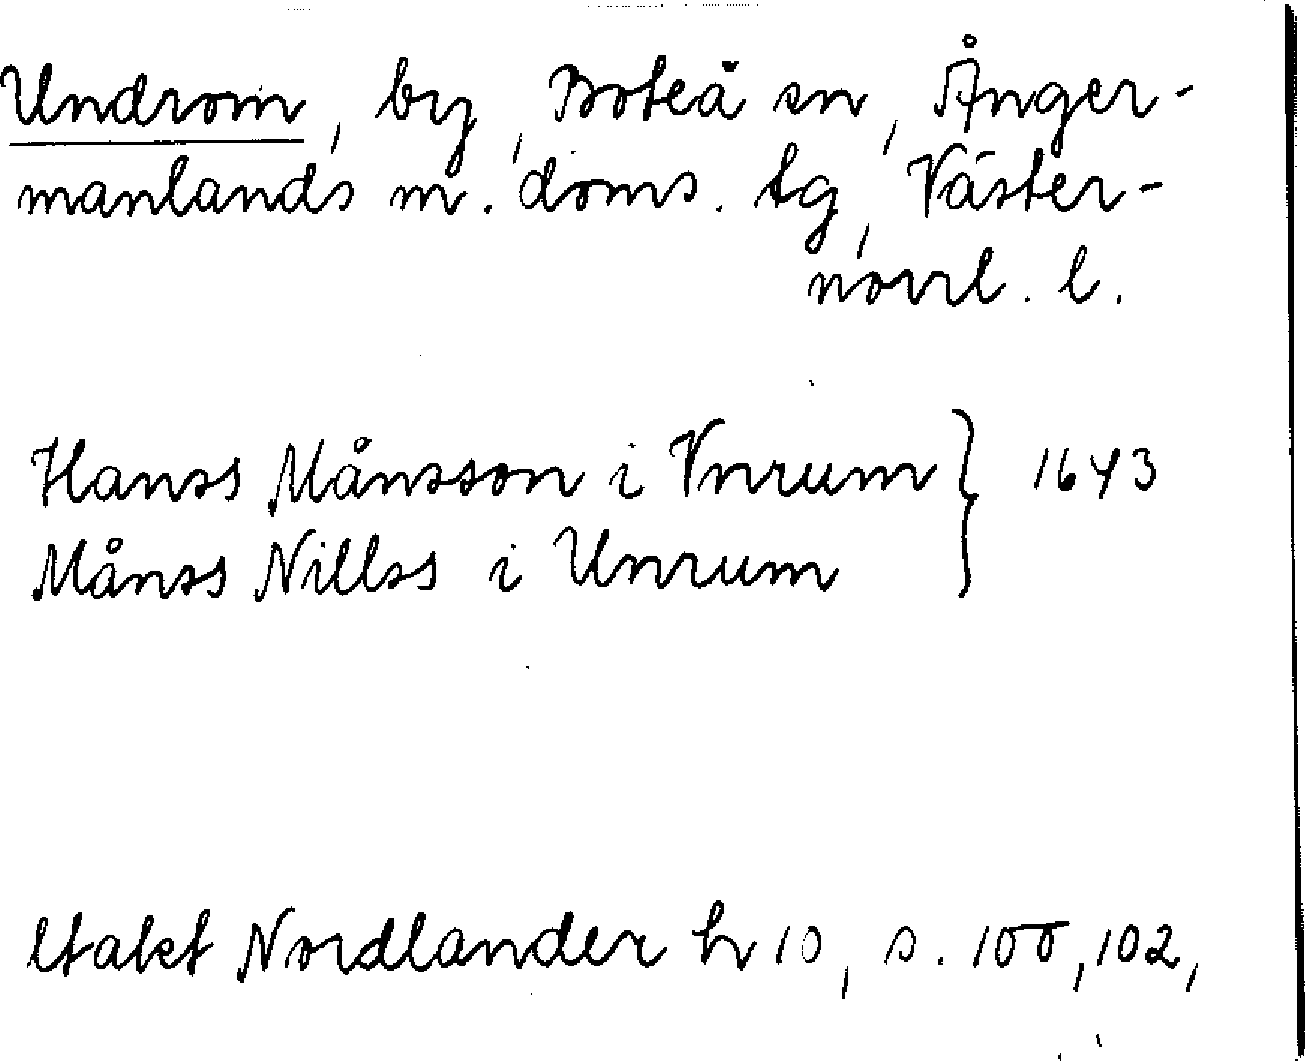 Undrom, by, Boteå sn, Ånger-
manlands m. doms. tg, Väster-
norrl. l.
Hanss Månsson i Vnrum } 1643
Månss Nillss i Unrum
Nordlander h 10, s. 100, 102,